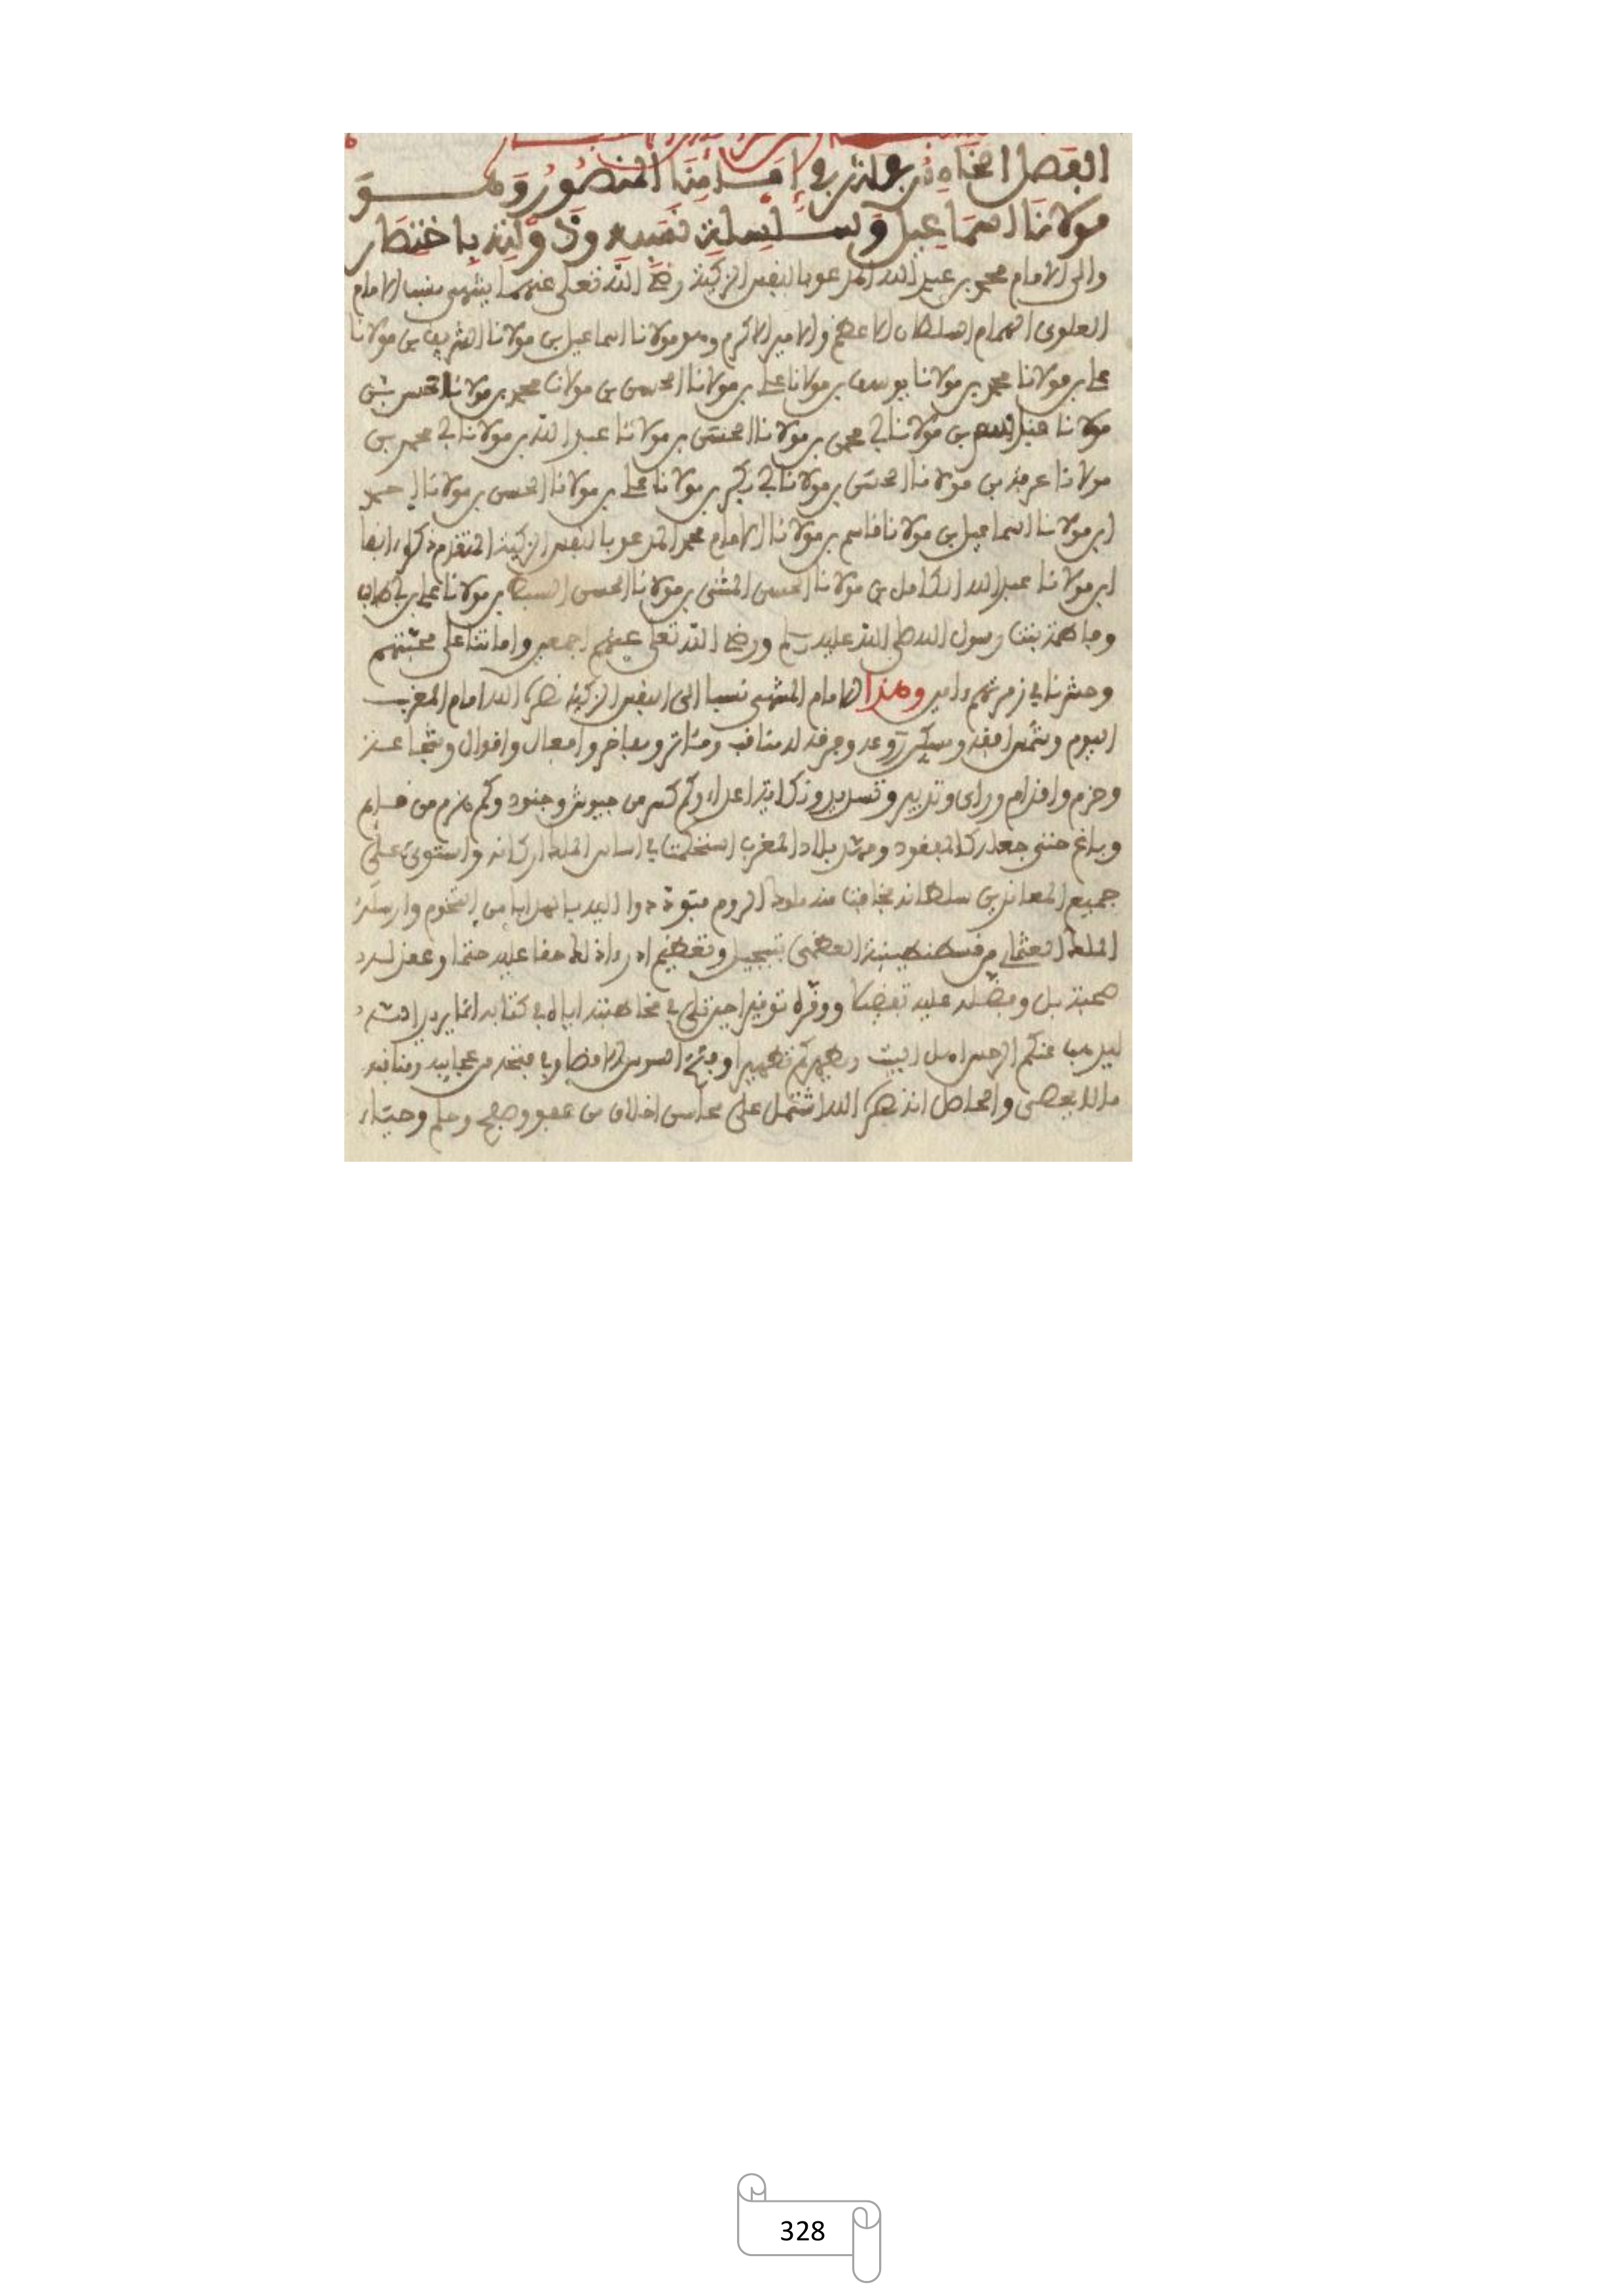 الفصل الحادي والعشرون في إمامنا المنصور وهو
مولانا اسماعيل وسلسلة نسبه ودولته باختصار
والى الامام محمد بن عبد الله المدعو بالنفس الزكية رضي الله تعلى عنهما ينتهي نسب الامام
العلوي الهمام السلطان الاعظم والامير الاكرم وهو مولانا اسماعيل بن مولانا الشريف بن مولانا
علي بن مولانا محمد بن مولانا يوسف بن مولانا علي بن مولانا الحسن بن مولانا محمد بن مولانا الحسن بن
مولانا بن مولانا ابي محمد بن مولانا الحسن بن مولانا عبد الله بن مولانا ابي محمد بن
مولانا عرفة بن مولانا الحسن بن مولانا ابي بكر بن مولانا علي بن مولانا الحسن بن مولانا احمد
ابن مولانا اسماعيل بن مولانا قاسم بن مولانا الامام محمد المدعو بالنفس الزكية المتقدم ذكره انفا
ابن مولانا عبد الله الكامل بن مولانا الحسن المثنى بن مولانا الحسن السبط بن مولانا علي بن ابي طالب
وفاطمة بنت رسول الله صلى الله عليه وسلم ورضي الله تعلى عنهم اجمعين واماتنا على محبتهم
وحشرنا في زمرتهم دامين وهذا الامام المنتهي نسبا الى النفس الزكية نصره الله امام المغرب
اليوم وشمس افقه وقد له مناقب ومئاثر ومفاخر وافعال واقوال وشجاعة
وحزم واقدام وراي وتدبير وتسديد ونكاية اعداء وكم كسر من جيوش وجنود وكم هزم من
وباغ حتى جعله كالمفقود ومهد بلاد المغرب استحكمت في اساس الملك اركانه واستوى على
جميع المعاندين سلطانه فخافت منه ملوك الروم اليه بالهدايا من التخوم وارسل
الملك العثماني من قسطنطينية العظمى بتبجيل وتعظيم اذ راى ذلك حقا عليه حتما وعقد له
صحبة بل وفضله عليه تفضيلا ووقره توقيرا حين تلى في مخاطبته اياه في كتابه انما يريد الله
ليذهب عنكم الرجس اهل البيت ويطهركم تطهيرا السوس الاقصا عجايبه ومناقبه
ما لا يحصى والحاصل انه نصره الله اشتمل على محاسن اخلاق من عفو وصفح وحلم وحياء
328